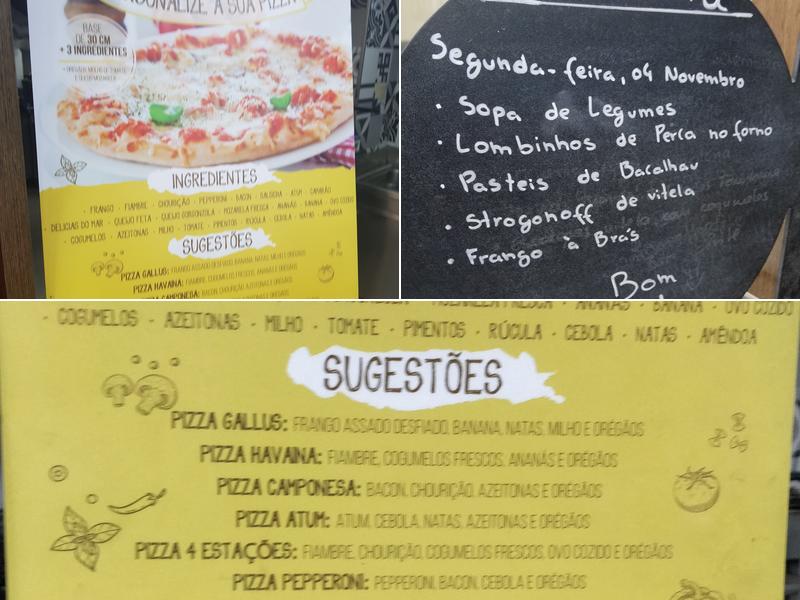 PERSONALIZE A SUA PIZZA
BASE
DE 30 CM
+ 3 INGREDIENTES
INGREDIENTES
· FRANGO · FIAMBRE · CHOURIÇÃO · PEPPERONI · BACON · SALSICHA · ATUM · CAMARÃO
· DELICIAS DO MAR · QUEIJO FETA · QUEIJO GORGONZOLA · MOZARELA FRESCA · ANANÁS · BANANA · OVO COZIDO
· COGUMELOS · AZEITONAS · MILHO · TOMATE · PIMENTOS · RÚCULA · CEBOLA · NATAS · AMÊNDOA
SUGESTÕES
PIZZA GALLUS: FRANGO ASSADO DESFIADO, BANANA, NATAS, MILHO E ORÉGÃOS
PIZZA HAVAINA: FIAMBRE, COGUMELOS FRESCOS, ANANÁS E ORÉGÃOS
PIZZA CAMPONESA: BACON, CHOURIÇÃO, AZEITONAS E ORÉGÃOS
Segunda-feira, 04 Novembro
· Sopa de Legumes
· Lombinhos de Perca no forno
· Pasteis de Bacalhau
· Strogonoff de vitela
· Frango à Brás
Bom
MOZARELA FRESCA · ANANÁS · BANANA · OVO COZIDO
· COGUMELOS · AZEITONAS · MILHO · TOMATE · PIMENTOS · RÚCULA · CEBOLA · NATAS · AMÊNDOA
SUGESTÕES
PIZZA GALLUS: FRANGO ASSADO DESFIADO, BANANA, NATAS, MILHO E ORÉGÃOS
PIZZA HAVAINA: FIAMBRE, COGUMELOS FRESCOS, ANANÁS E ORÉGÃOS
PIZZA CAMPONESA: BACON, CHOURIÇÃO, AZEITONAS E ORÉGÃOS
PIZZA ATUM: ATUM, CEBOLA, NATAS, AZEITONAS E ORÉGÃOS
PIZZA 4 ESTAÇÕES: FIAMBRE, CHOURIÇÃO, COGUMELOS FRESCOS, OVO COZIDO E ORÉGÃOS
PIZZA PEPPERONI: PEPPERONI, BACON, CEBOLA E ORÉGÃOS